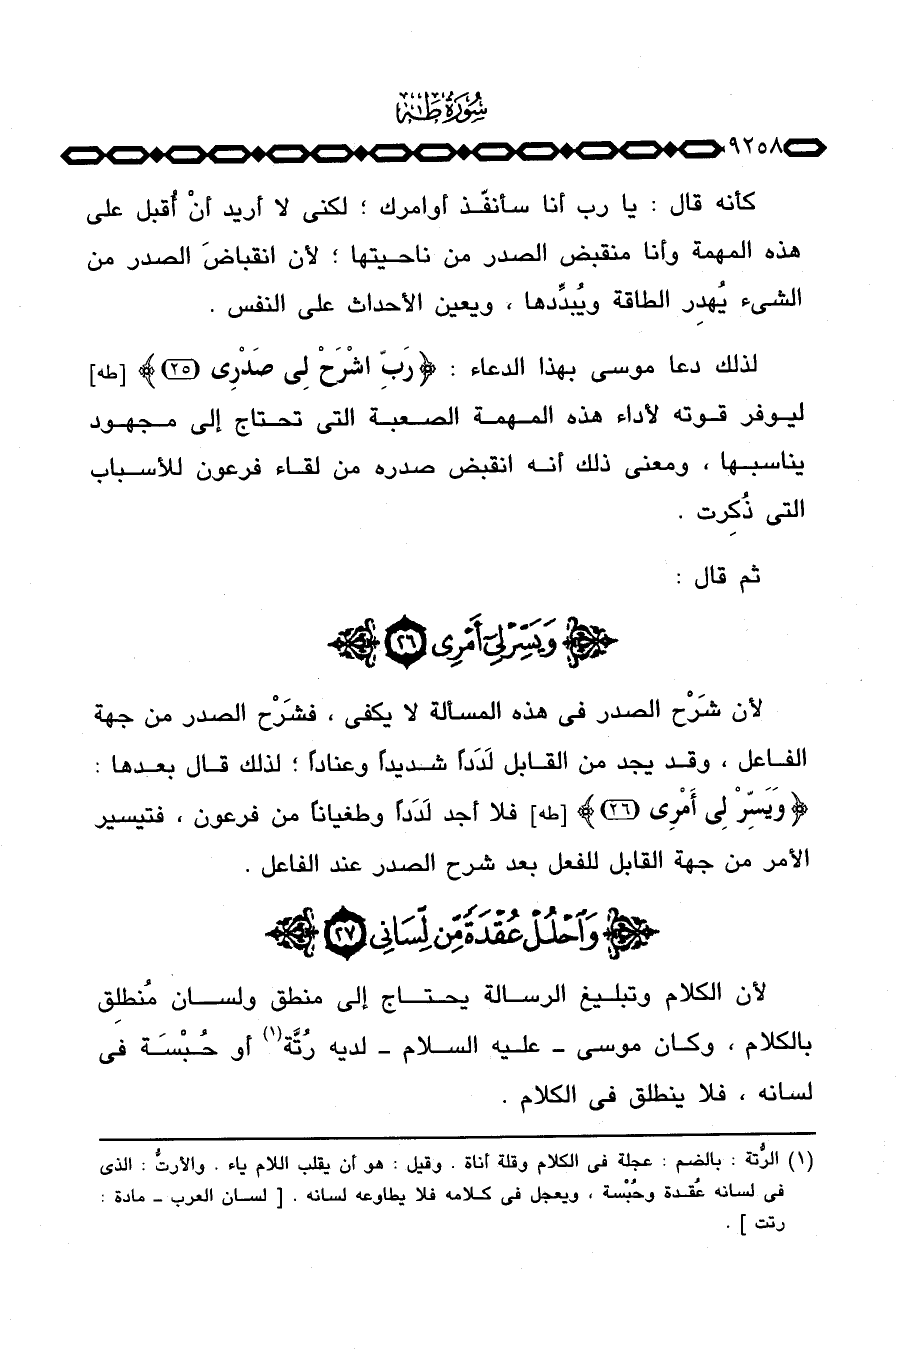 سُورَةُ طه
٩٢٥٨
كأنه قال : يا رب أنا سأنفّذ أوامرك ؛ لكنى لا أريد أنْ أُقبل على
هذه المهمة وأنا منقبض الصدر من ناحيتها ؛ لأن انقباضَ الصدر من
الشىء يُهدِر الطاقة ويُبدِّدها ، ويعين الأحداث على النفس .
لذلك دعا موسى بهذا الدعاء : ﴿ رَبِّ اشْرَحْ لِى صَدْرِى (٢٥) ﴾ [طه]
ليوفر قوته لأداء هذه المهمة الصعبة التى تحتاج إلى مجهود
يناسبها ، ومعنى ذلك أنه انقبض صدره من لقاء فرعون للأسباب
التى ذُكِرت .
ثم قال :
وَيَسِّرْ لِىٓ أَمْرِى ٢٦
لأن شَرْح الصدر فى هذه المسألة لا يكفى ، فشَرْح الصدر من جهة
الفاعل ، وقد يجد من القابل لَدَداً شديداً وعناداً ؛ لذلك قال بعدها :
﴿ وَيَسِّرْ لِى أَمْرِى (٢٦) ﴾ [طه] فلا أجد لَدَداً وطغياناً من فرعون ، فتيسير
الأمر من جهة القابل للفعل بعد شرح الصدر عند الفاعل .
وَٱحْلُلْ عُقْدَةً مِّن لِّسَانِى ٢٧
لأن الكلام وتبليغ الرسالة يحتاج إلى منطق ولسان مُنطلِق
بالكلام ، وكان موسى - عليه السلام - لديه رُتَّة(١) أو حُبْسَة فى
لسانه ، فلا ينطلق فى الكلام .
(١) الرُّتة : بالضم : عجلة فى الكلام وقلة أناة . وقيل : هو أن يقلب اللام ياء . والأرتُّ : الذى
فى لسانه عُقدة وحُبْسة ، ويعجل فى كلامه فلا يطاوعه لسانه . [ لسان العرب - مادة :
رتت ] .